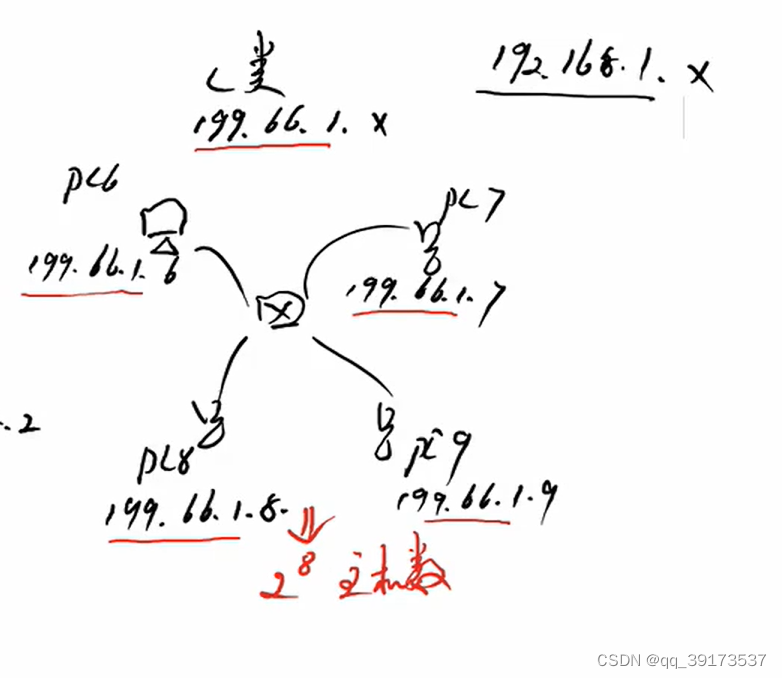 C类
192.168.1.x
199.66.1.x
PC6
PC7
199.66.1.6
199.66.1.7
.2
PC8
PC9
199.66.1.8.
199.66.1.9
2^8 主机数
CSDN @qq_39173537